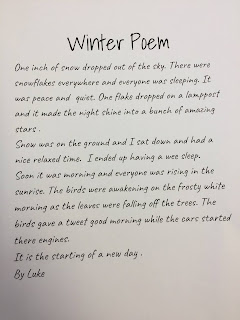 Winter Poem
One inch of snow dropped out of the sky. There were
snowflakes everywhere and everyone was sleeping. It
was peace and quiet. One flake dropped on a lamppost
and it made the night shine into a bunch of amazing
stars .
Snow was on the ground and I sat down and had a
nice relaxed time. I ended up having a wee sleep.
Soon it was morning and everyone was rising in the
sunrise. The birds were awakening on the frosty white
morning as the leaves were falling off the trees. The
birds gave a tweet good morning while the cars started
there engines.
It is the starting of a new day .
By Luke